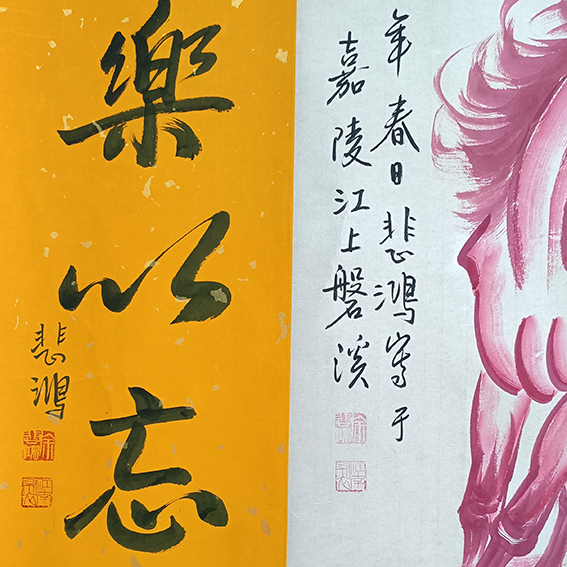 年春日悲鴻寫于
嘉陵江上磐溪
樂以忘
悲鴻